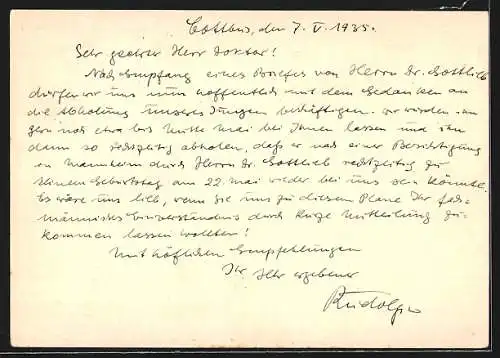 Cottbus, den 7. V. 1935.
Sehr geehrter Herr Doktor!
Nach Empfang eines Briefes von Herrn Dr. Gottlieb
dürfen wir uns nun hoffentlich mit dem Gedanken an
die Abholung unseres Jungen beschäftigen. Wir würden ihn
gern noch etwa bis Mitte Mai bei Ihnen lassen und ihn
dann so rechtzeitig abholen, daß er nach einer Besichtigung
in Mannheim durch Herrn Dr. Gottlieb rechtzeitig zu
seinem Geburtstag am 22. Mai wieder bei uns sein könnte.
Es wäre uns lieb, wenn Sie uns zu diesem Plane Ihr fach-
männisches Einverständnis durch kurze Mitteilung zu-
kommen lassen wollten!
Mit höflichen Empfehlungen
Ihr sehr ergebener